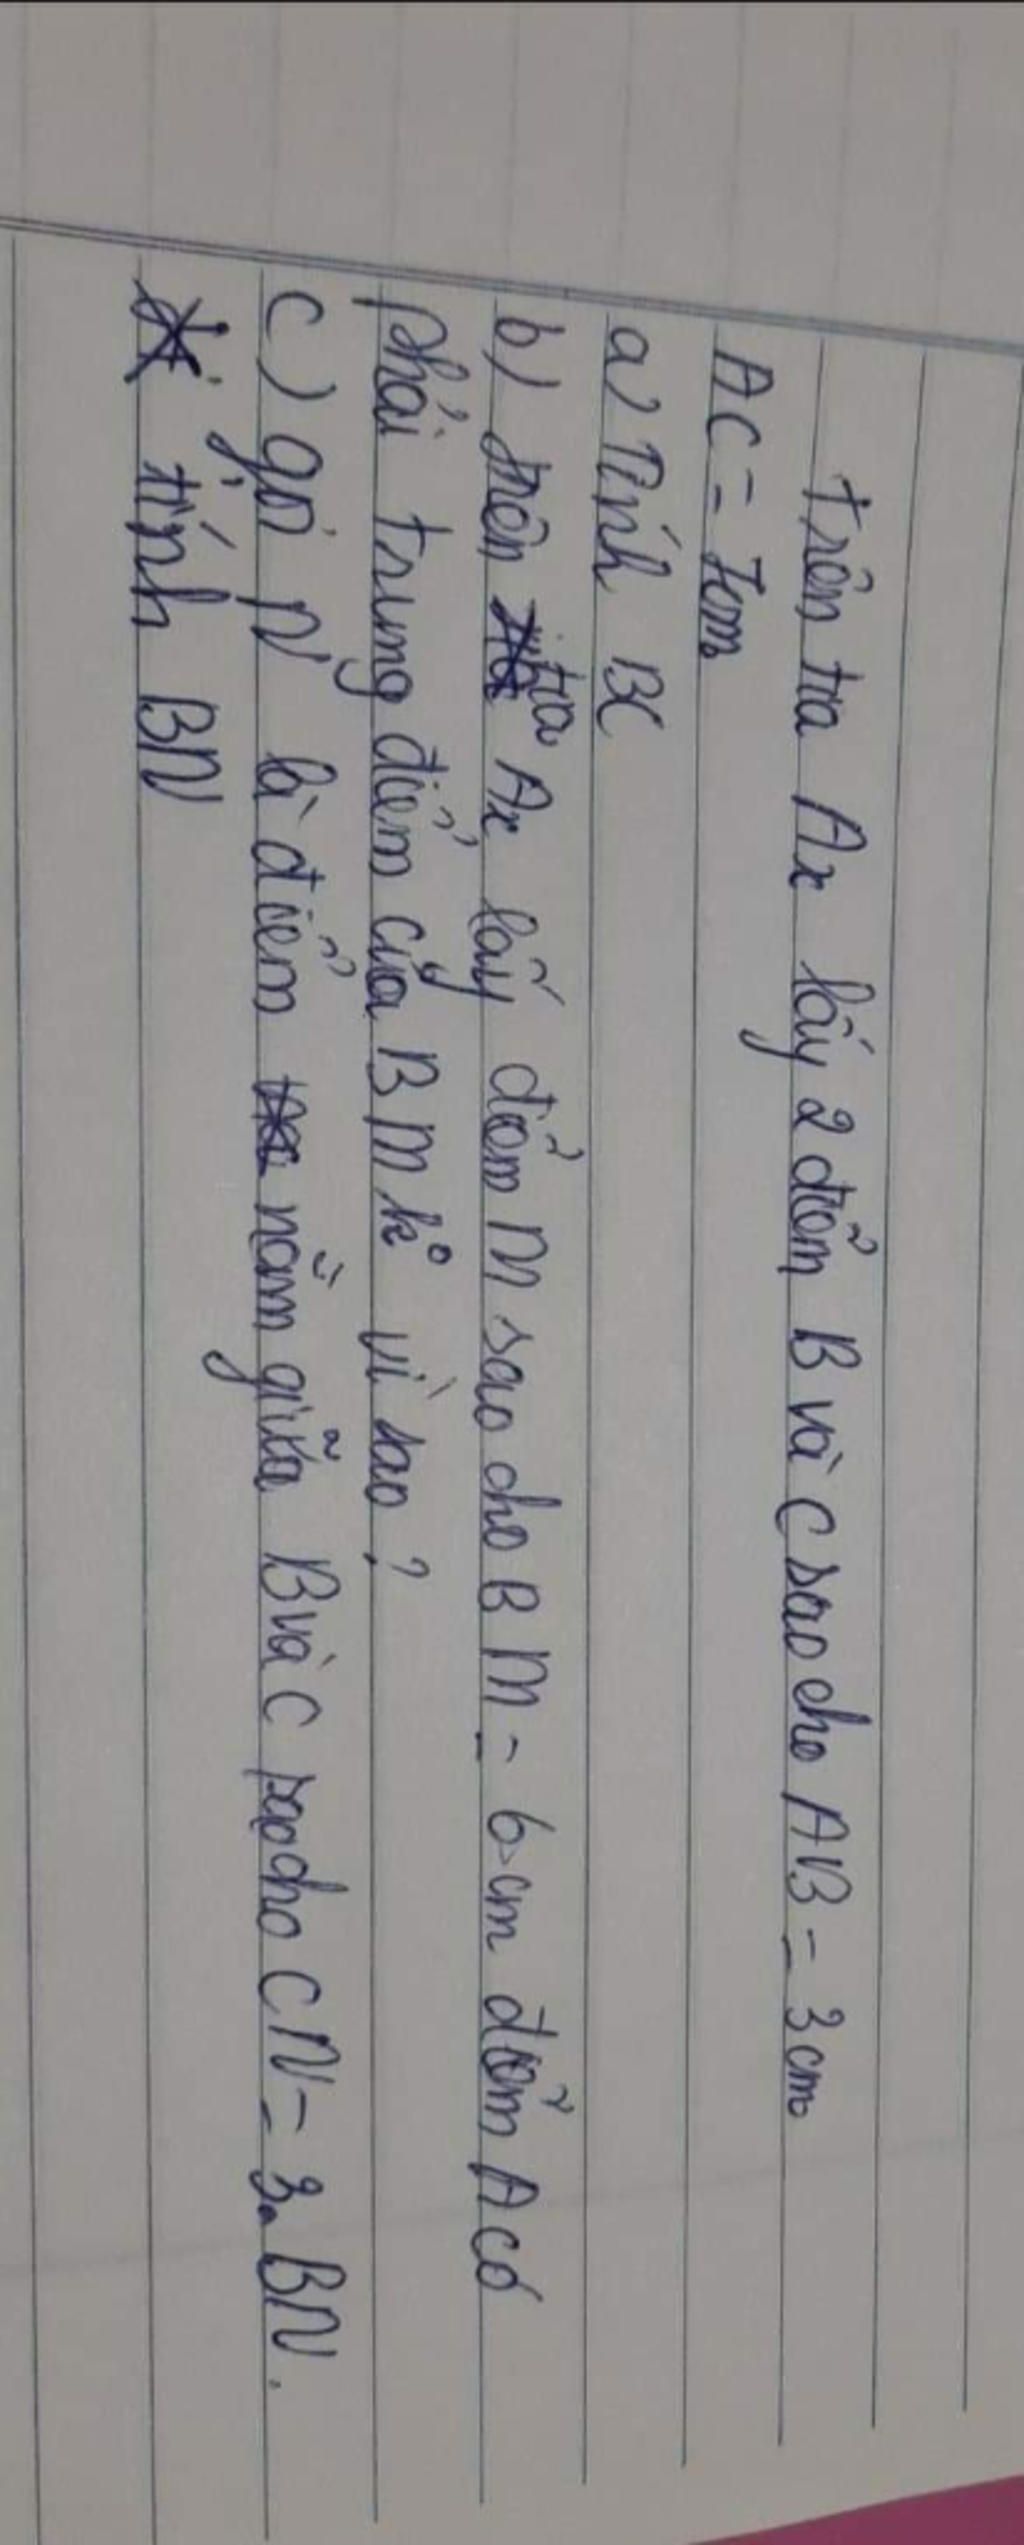 Trên tia Ax lấy 2 điểm B và C sao cho AB = 3cm
AC = 7cm
a) Tính BC
b) trên tia Ax lấy điểm M sao cho BM = 6cm điểm A có
phải trung điểm của BM kº vì sao?
c) gọi N là điểm nằm giữa B và C sao cho CN = 3.BN.
tính BN